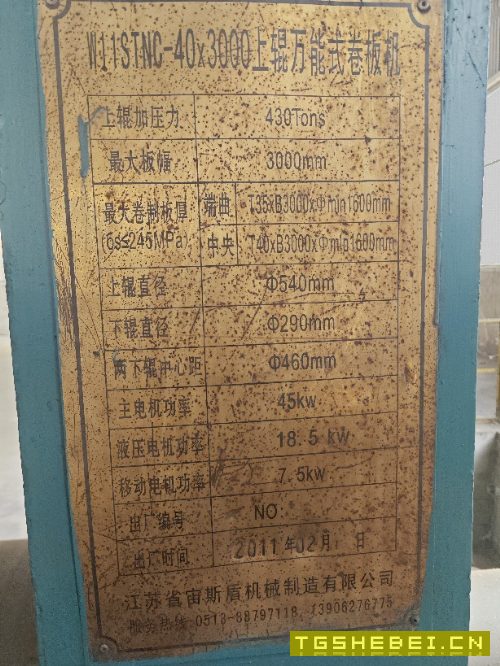 W11STNC-40x3000上辊万能式卷板机
上辊加压力 430Tons
最大板幅 3000mm
最大卷制板厚 端曲 T35xB3000xΦmin1600mm
(σs≤245MPa) 中央 T40xB3000xΦmin1600mm
上辊直径 Φ540mm
下辊直径 Φ290mm
两下辊中心距 Φ460mm
主电机功率 45kw
液压电机功率 18.5 kw
移动电机功率 7.5kw
出厂编号 NO
出厂时间 2011年02月 日
江苏省宙斯盾机械制造有限公司
服务热线:0513-88797118、13906276775
TGSHEBEI.CN